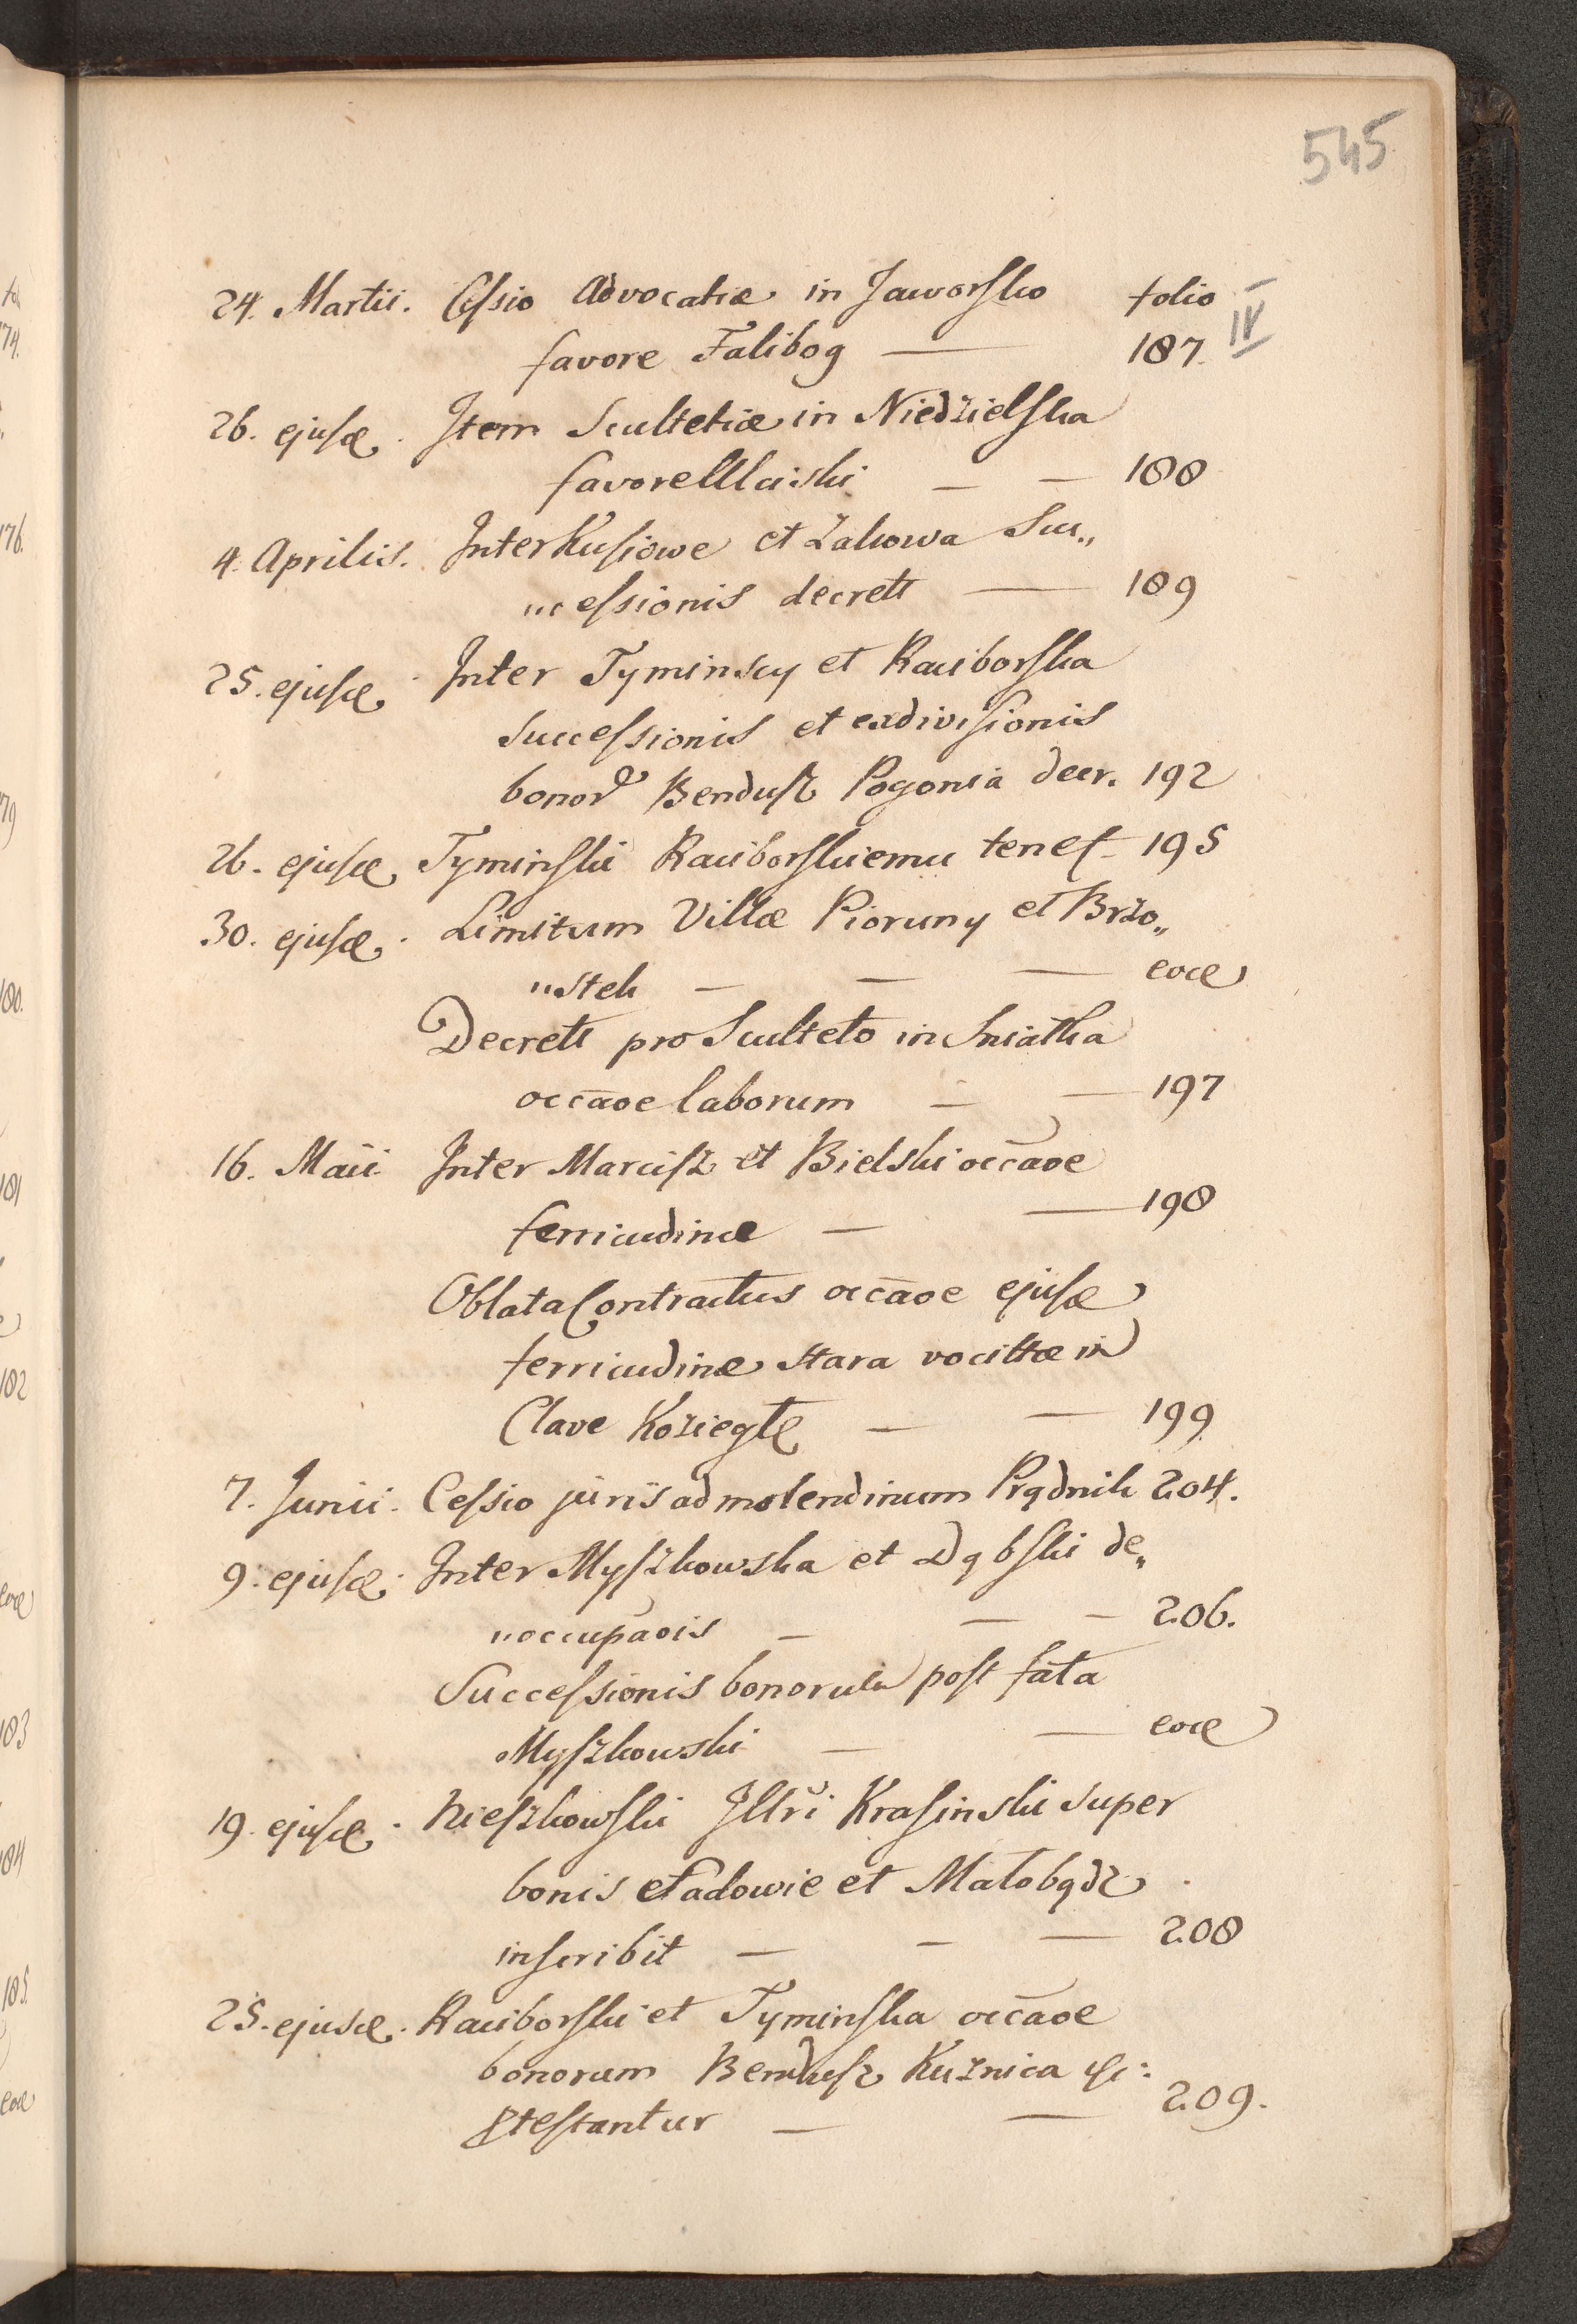 545
24. Martii. Cessio Advocatiæ in Jaworsko folio
favore Falibog — 187. IV
26. ejusd. Item Scultetiæ in Niedzielska
favore Ulaiski — — 188
4. Aprilis. Inter Kusiowe et Zakowa Suc„
„cessionis decrett — 189
25. ejusd. Inter Tyminscy et Raciborska
Successionis et exdivisionis
bonor. Bendusz Pogonia decr. 192
26. ejusd. Tyminski Raciborskiemu tenet. 195
30. ejusd. Limitum Villæ Pioruny et Brzo„
„stek — — — eod
Decrett pro Sculteto in Sniatka
occāōe laborum — — 197
16. Maii Inter Marcisz et Bielski occāōe
ferricudinæ — — 198
Oblata Contractus occāōe ejusd
ferricudinæ stara vocittæ in
Clave Koziegł — — 199
7. Junii. Cessio juris ad molendinum Prądnik 204.
9. ejusd. Inter Myszkowska et Dąbski de„
„occupāōis — — — 206.
Successionis bonorum post fata
Myszkowski — — eod
19. ejusd. Nieszkowski Illri Krasinski super
bonis Ładowie et Małobądz
inscribit — — — 208
25. ejusd. Raciborski et Tyminska occāōe
bonorum Bendusz Kuznica &c:
ptestantur — — 209.